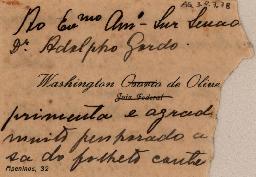 AG 3.2.7.18
Ao Exmo Amo Snr Senad
Dr. Adolpho Gordo.
Washington Osorio de Olive
Juiz Federal
primenta e agrad
muito penhorado a
sa do folheto conte
Apeninos, 32